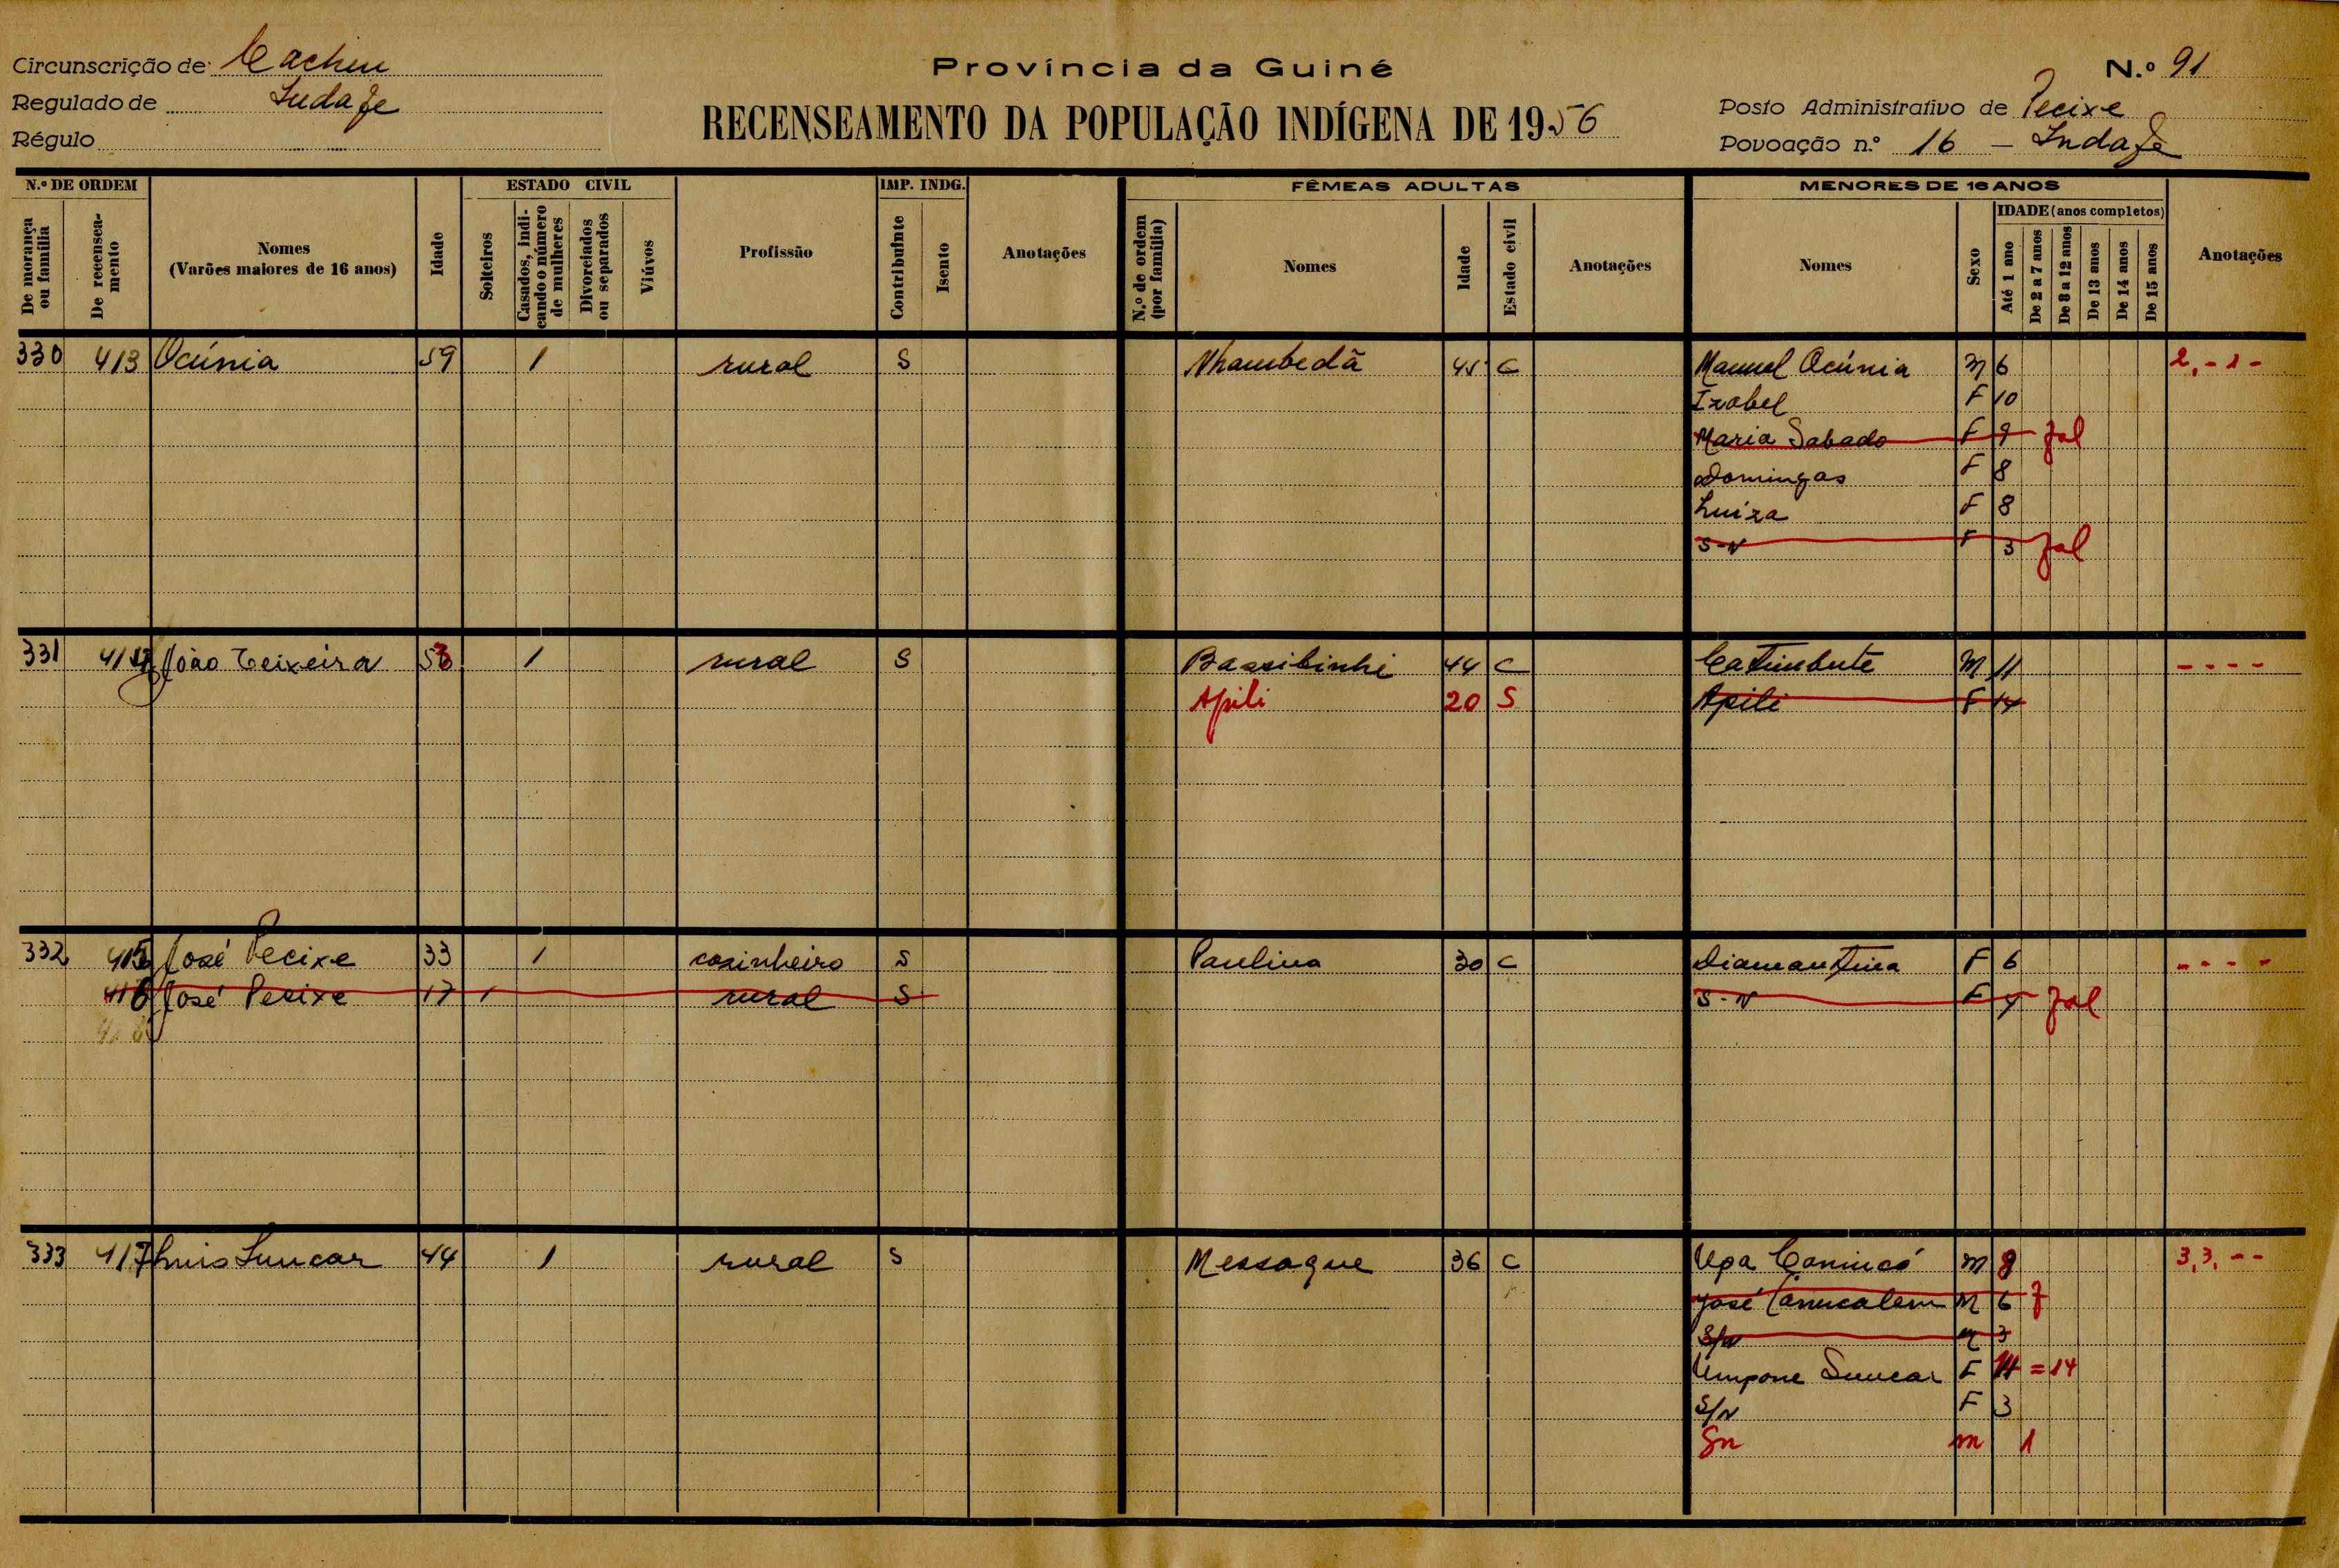 Circunscrição de Cacheu
Regulado de Indafe
Régulo
Província da Guiné
RECENSEAMENTO DA POPULAÇÃO INDÍGENA DE 1956
N.º 91
Posto Administrativo de Pecixe
Povoação n.º 16 - Indafe
N.º DE ORDEM
De morança ou família
De recenseamento
Nomes
(Varões maiores de 16 anos)
Idade
ESTADO CIVIL
Solteiros
Casados, indicando o número de mulheres
Divorciados ou separados
Viúvos
Profissão
IMP. INDG.
Contribuinte
Isento
Anotações
FÊMEAS ADULTAS
N.º de ordem (por família)
Nomes
Idade
Estado civil
Anotações
MENORES DE 16 ANOS
Nomes
Sexo
IDADE (anos completos)
Até 1 ano
De 2 a 7 anos
De 8 a 12 anos
De 13 anos
De 14 anos
De 15 anos
Anotações
330 413 Ocúnia 59 1 rural S Nhambedã 45 C Manuel Ocúnia M 6 2,-1-
Izabel F 10
Maria Sabado F 9 fal
Domingas F 8
Luiza F 8
S-N F 3 fal
331 João Teixeira 1 rural S Bassibinhi 44 C Catimbute M 11 ----
Apili 20 S Apili F 14
332 415 José Pecixe 33 1 cosinheiro S Paulina 30 C Diamantina F 6 ----
416 José Pecixe 17 1 rural S S-N F 4 fal
333 417 Luis Suncar 44 1 rural S Messaque 36 C Upa Camincó M 3,3,--
José Canucalem M 6 f
S/N M 3
Umpone Suncar F = 14
S/N F 3
Sn m 1